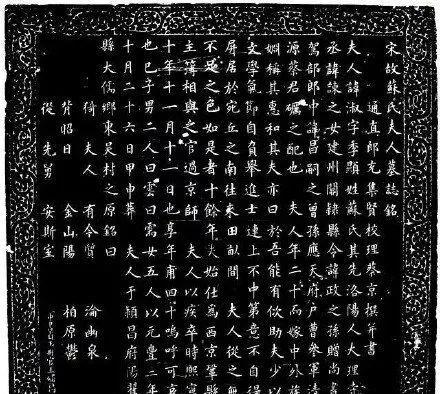 宋故蘇氏夫人墓誌銘
通直郎充集賢校理蔡京撰并書
夫人諱淑字季顯姓蘇氏其先洛陽人大理寺
丞諱諒之女建州關隸縣令諱政之孫贈尚書
駕部郎中諱昌嗣之曾孫應天府戶曹參軍清
源蔡君礪之配也 夫人年二十而嫁中外族
姻稱其惠和其夫亦曰於吾能有似助夫少以
文學氣節自負舉進士連上不中第意不自得
屏居於宛丘之南往來田畝間 夫人從之無
不足之色如是者十餘年夫始仕為西京鞏縣
主簿相與之官過京師 夫人以疾卒時熙寧
十年十一月十一日也享年甫四十嗚呼可哀
也已子男二人曰雲曰需女五人以元豐二年
十月二十六日甲申葬 夫人于潁昌府陽翟
縣大儒鄉東吳村之原銘曰
猗夫人 有令質 淪幽泉
背昭日 金山陽 柏原鬱
從先舅 安斯室